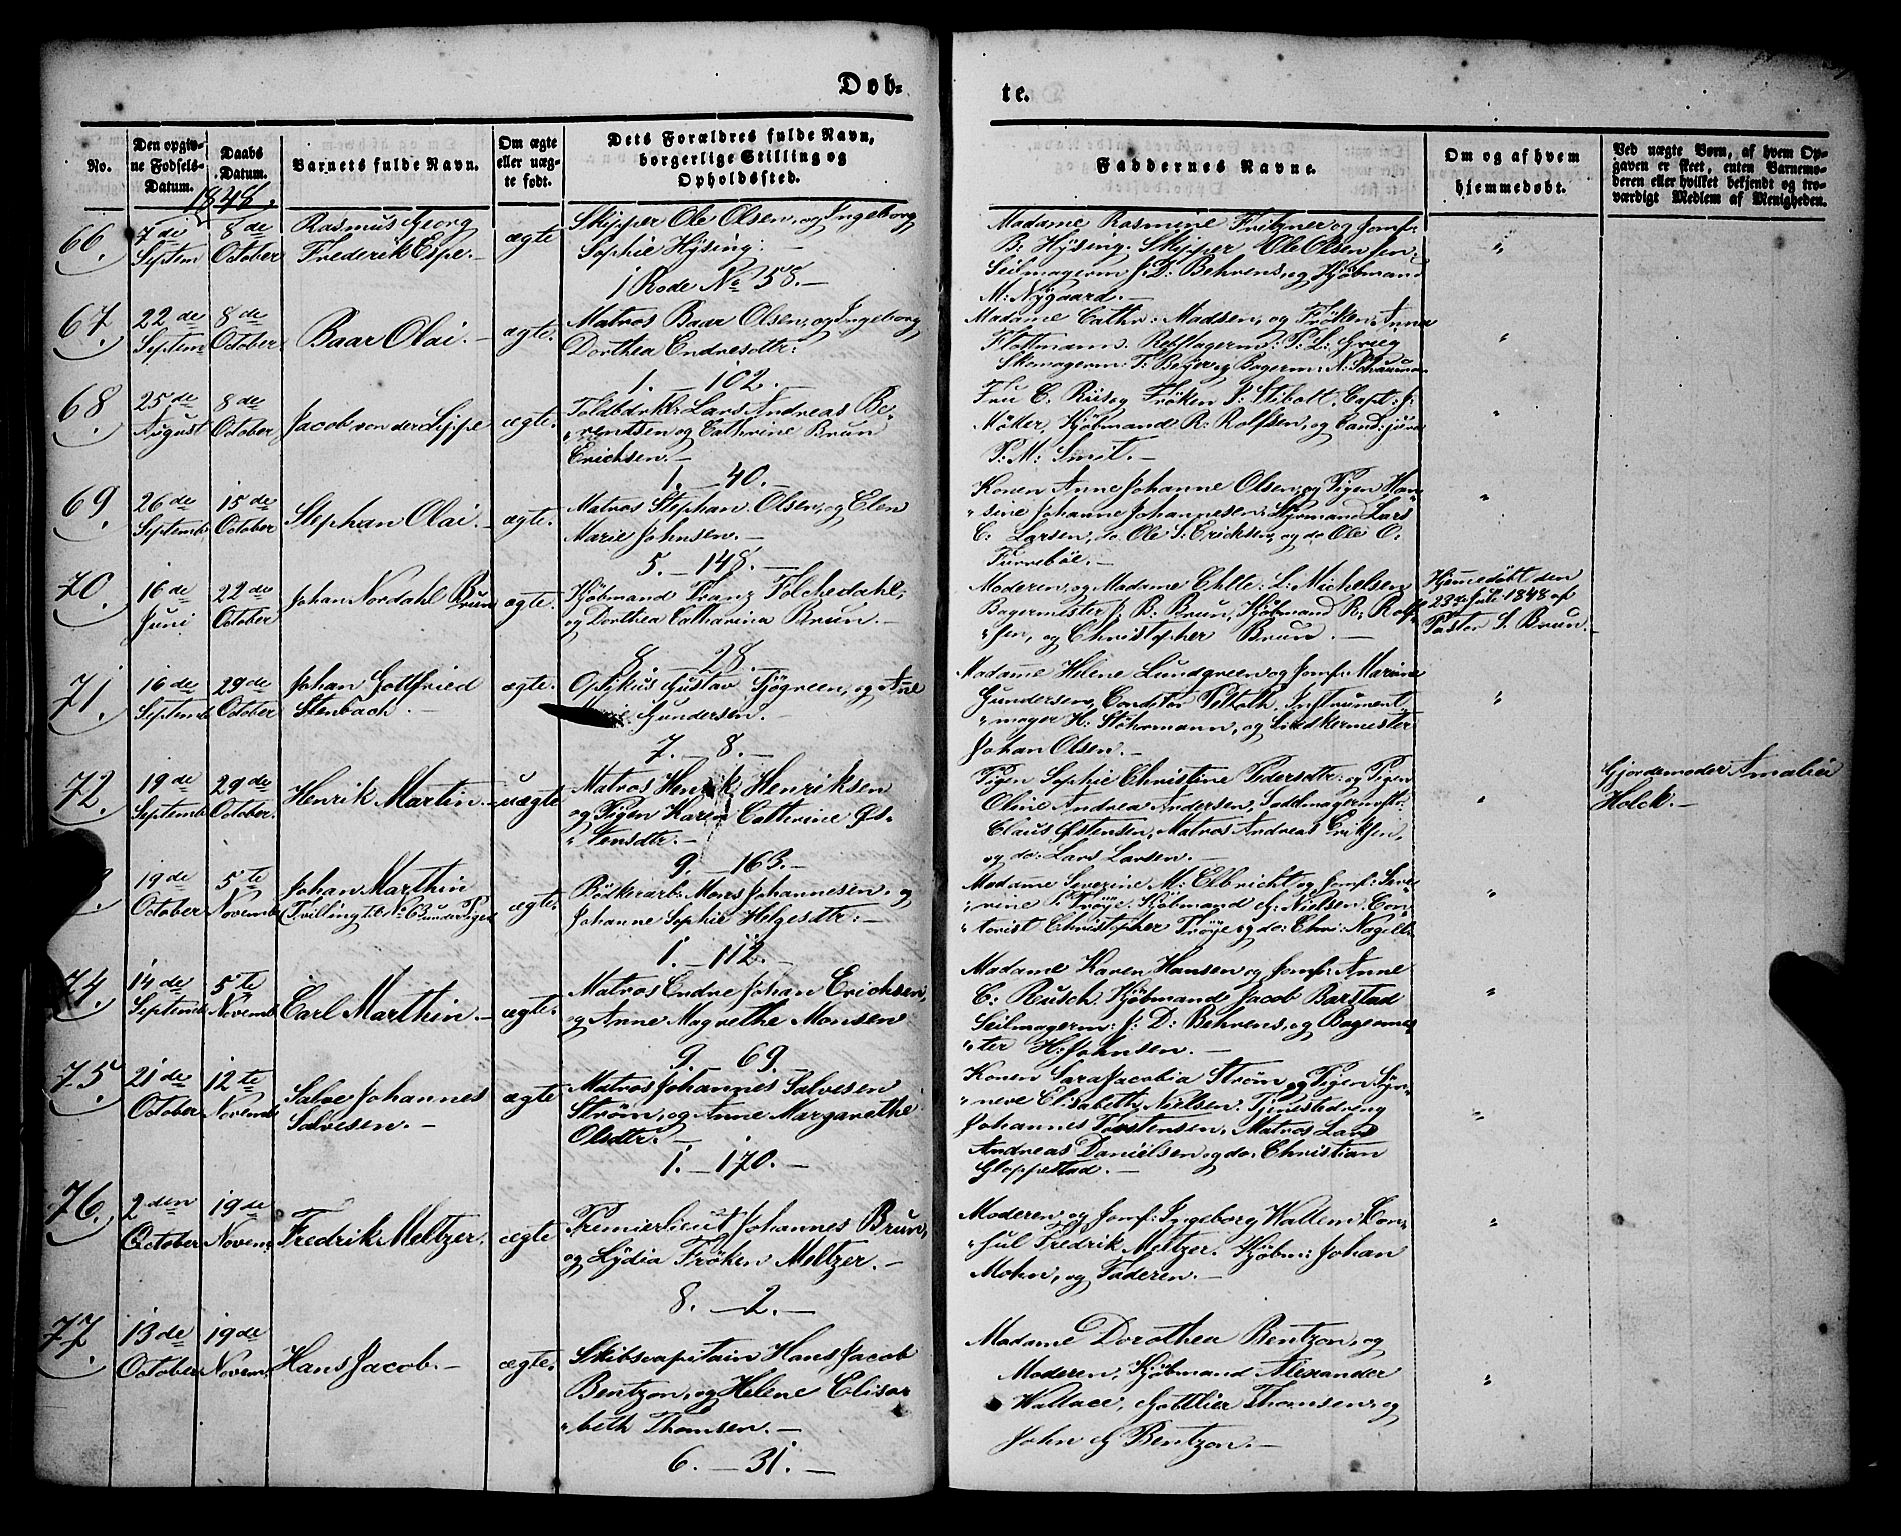 Døb=
te.
No.
Den opgiv-
ne Fødsels-
Datum.
Daabs
Datum.
Barnets fulde Navn.
Om ægte
eller uæg-
te født.
Dets Forældres fulde Navn,
borgerlige Stilling og
Opholdssted.
Faddernes Navne.
Om og af hvem
hjemmedøbt.
Ved uægte Børn, af hvem Op-
gaven er skeet, enten Barnemo-
deren eller hvilket bekjendt og tro-
værdigt Medlem af Menigheden.
1848.
66.
7de
Septem
8de
October
Rasmus Georg
Frederik Espe.
ægte
Skipper Ole Olsen, og Ingeborg
Sophie Hysing.
1 Rode No 58.
Madame Rasmine Fritzner og Jomf:
B. Hysing. Skipper Ole Olsen sen:
Seilmagerm J. D. Behrens, og Kjöbmand
M. Nygaard.
67.
22de
Septem
8de
October
Baar Olai.
ægte.
Matros Baar Olsen, og Ingeborg
Dorthea Endresdtr:
1. 102.
Madame Cathr: Madsen, og Frøken Anna
Flottmann. Rebslagerm: P. L. Grieg
Skomagerm: T. Beyer og Bagerm: N.
68.
25de
August
8de
October
Jacob von der Lippe
ægte.
Toldbdrkl: Lars Andreas Be-
rendtsen og Cathrine Brun
Erichsen.
1. 40.
Fru C. Riis og Frøken P. Stibolt. Capt: J.
Möller, Kjöbmand R. Rolfsen, og Cand: juris
P. M. Smit.
69.
26de
Septemb
15de
October
Stephan Olai.
ægte.
Matros Stephan Olsen, og Elen
Marie Johnsen.
5. 148.
Konen Anne Johanne Olsen, og Pigen Han-
sine Johanne Johannesen. Styrmand Lars
C. Larsen, do Ole S. Erichsen, og do Ole O.
Furreböe.
70.
16de
Juni
22de
October
Johan Nordahl Brun
ægte.
Kjöbmand Franz Folchedahl,
og Dorthea Catharina Brun.
8 28.
Moderen, og Madame Chtle: L. Michelsen
Bagermester J. B. Brun, Kjöbmand R. Rolf-
sen, og Christopher Brun.
Hjemmedöbt den
23de Juli 1848 af
Pastor S. Brun.
71.
16de
Septemb
29de
October
Johan Gottfried
Stenbach.
ægte.
Optikus Gustav Sjögreen, og Ane
Gundersen.
7. 8.
Madame Helene Lundgreen og Jomf: Marine
Gundersen, Conditor Petroth. Instrument
mager H. Stöhrmann, og Snedkermester
Johan Olsen.
72.
19de
Septemb
29de
October.
Henrik Martin.
uægte
Matros Henrik Henriksen
og Pigen Karen Cathrine Øs-
tensdtr.
9. 163.
Pigen Sophie Christine Pedersdtr: og Pigen
Oline Andrea Andersen, Saddmagermstr:
Claus Østensen, Matros Andreas Eriksen,
og do: Lars Larsen.
Gjordemoder Amalia
Holck.
19de
October
5te
Novemb
Johan Marthin
Tvilling til No 63 under Piger
ægte.
Bödkerarb: Mons Johannesen, og
Johanne Sophie Helgesdtr:
1. 112.
Madame Severine M. Elbricht og Jomf: Seve-
rine Tröye. Kjöbmand G. Nielsen. Con-
torist Christopher Tröye og do: Chr: Nagell.
74.
14de
Septemb
5te
Novemb
Carl Marthin.
ægte.
Matros Endre Johan Erichsen,
og Anne Magrethe Monsen
9. 69.
Madame Karen Hansen og Jomf: Anne
C. Rusch. Kjöbmand Jacob Barstad
Seilmagerm: J. D. Behrens, og Bagermes-
ter H. Johnsen.
75.
21de
October
12te
Novemb
Salve Johannes
Salvesen.
ægte
Matros Johannes Salvesen
Ström, og Anne Margarethe
Olsdtr.
1. 170.
Konen Sara Jacobia Ström, og Pigen Syn-
neve Elisabeth Nielsen. Tjenestedreng
Johannes Torstensen, Matros Lars
Andreas Danielsen og do. Christian
Gloppestad.
76.
2den
October
19de
Novem.
Fredrik Meltzer.
ægte
Premierlieut Johannes Brun,
og Lydia Fröken Meltzer.
8. 2.
Moderen, og Jomf: Ingeborg Wallem. Con-
sul Fredrik Meltzer. Kjöbm: Johan
Mohn, og Faderen.
77.
13de
October
19de
Novem.
Hans Jacob.
ægte.
Skibscapitain Hans Jacob
Bentzon, og Helene Elisa-
beth Thomsen.
6. 31.
Madame Dorothea Bentzon, og
Moderen, Kjöbmand Alexander
Wallace, Gottlier Thomsen, og
John G Bentzon.